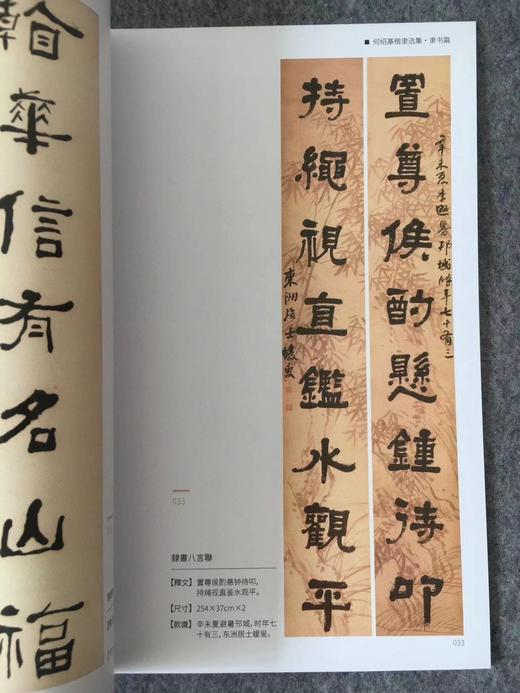 何绍基楷隶选集·隶书篇
辛未夏季避暑邗城時年七十有三
置尊俟酌懸鍾待叩
持繩視直鑑水觀平
東洲居士蝯叟
033
隸書八言聯
【釋文】置尊侯酌悬钟待叩，
持绳视直鉴水观平。
【尺寸】254×37cm×2
【款識】辛未夏避暑邗城，时年七
十有三，东洲居士蝯叟。
033
翰華信有名山福